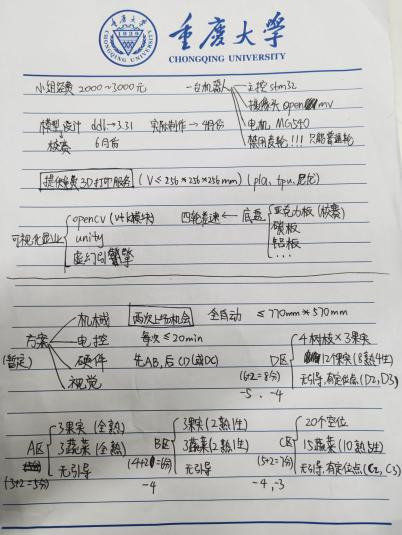 重庆大学
CHONGQING UNIVERSITY
小组经费 2000~3000元
一台机器人
主控 stm32
摄像头 openmv
电机 MG540
禁用麦轮!!! 只能普通轮
模型设计 ddl→3.31 实际制作→4月份
校赛 6月份
提供免费3D打印服务 (V≤256*256*256mm) (pla, tpu, 尼龙)
可视化显业
opencv (vtk模块)
unity
虚幻引擎
四轮差速 ← 底盘
亚克力板 (校赛)
碳板
铝板
...
方案
(暂定)
机械
电控
硬件
视觉
两次上场机会 全自动 ≤770mm*570mm
每次≤20min
先AB,后CD(或DC)
D区
(6+2=8分)
-5、-4
4树枝×3果实
12个果实(8熟4生)
无引导,有定位点(D2,D3)
A区
(3+2=5分)
3果实(全熟)
3蔬菜(全熟)
无引导
B区
(4+2=6分)
-4
3果实(2熟1生)
3蔬菜(2熟1生)
无引导
C区
(5+2=7分)
-4,-3
20个空位
15蔬菜(10熟5生)
无引导,有定位点(C2,C3)